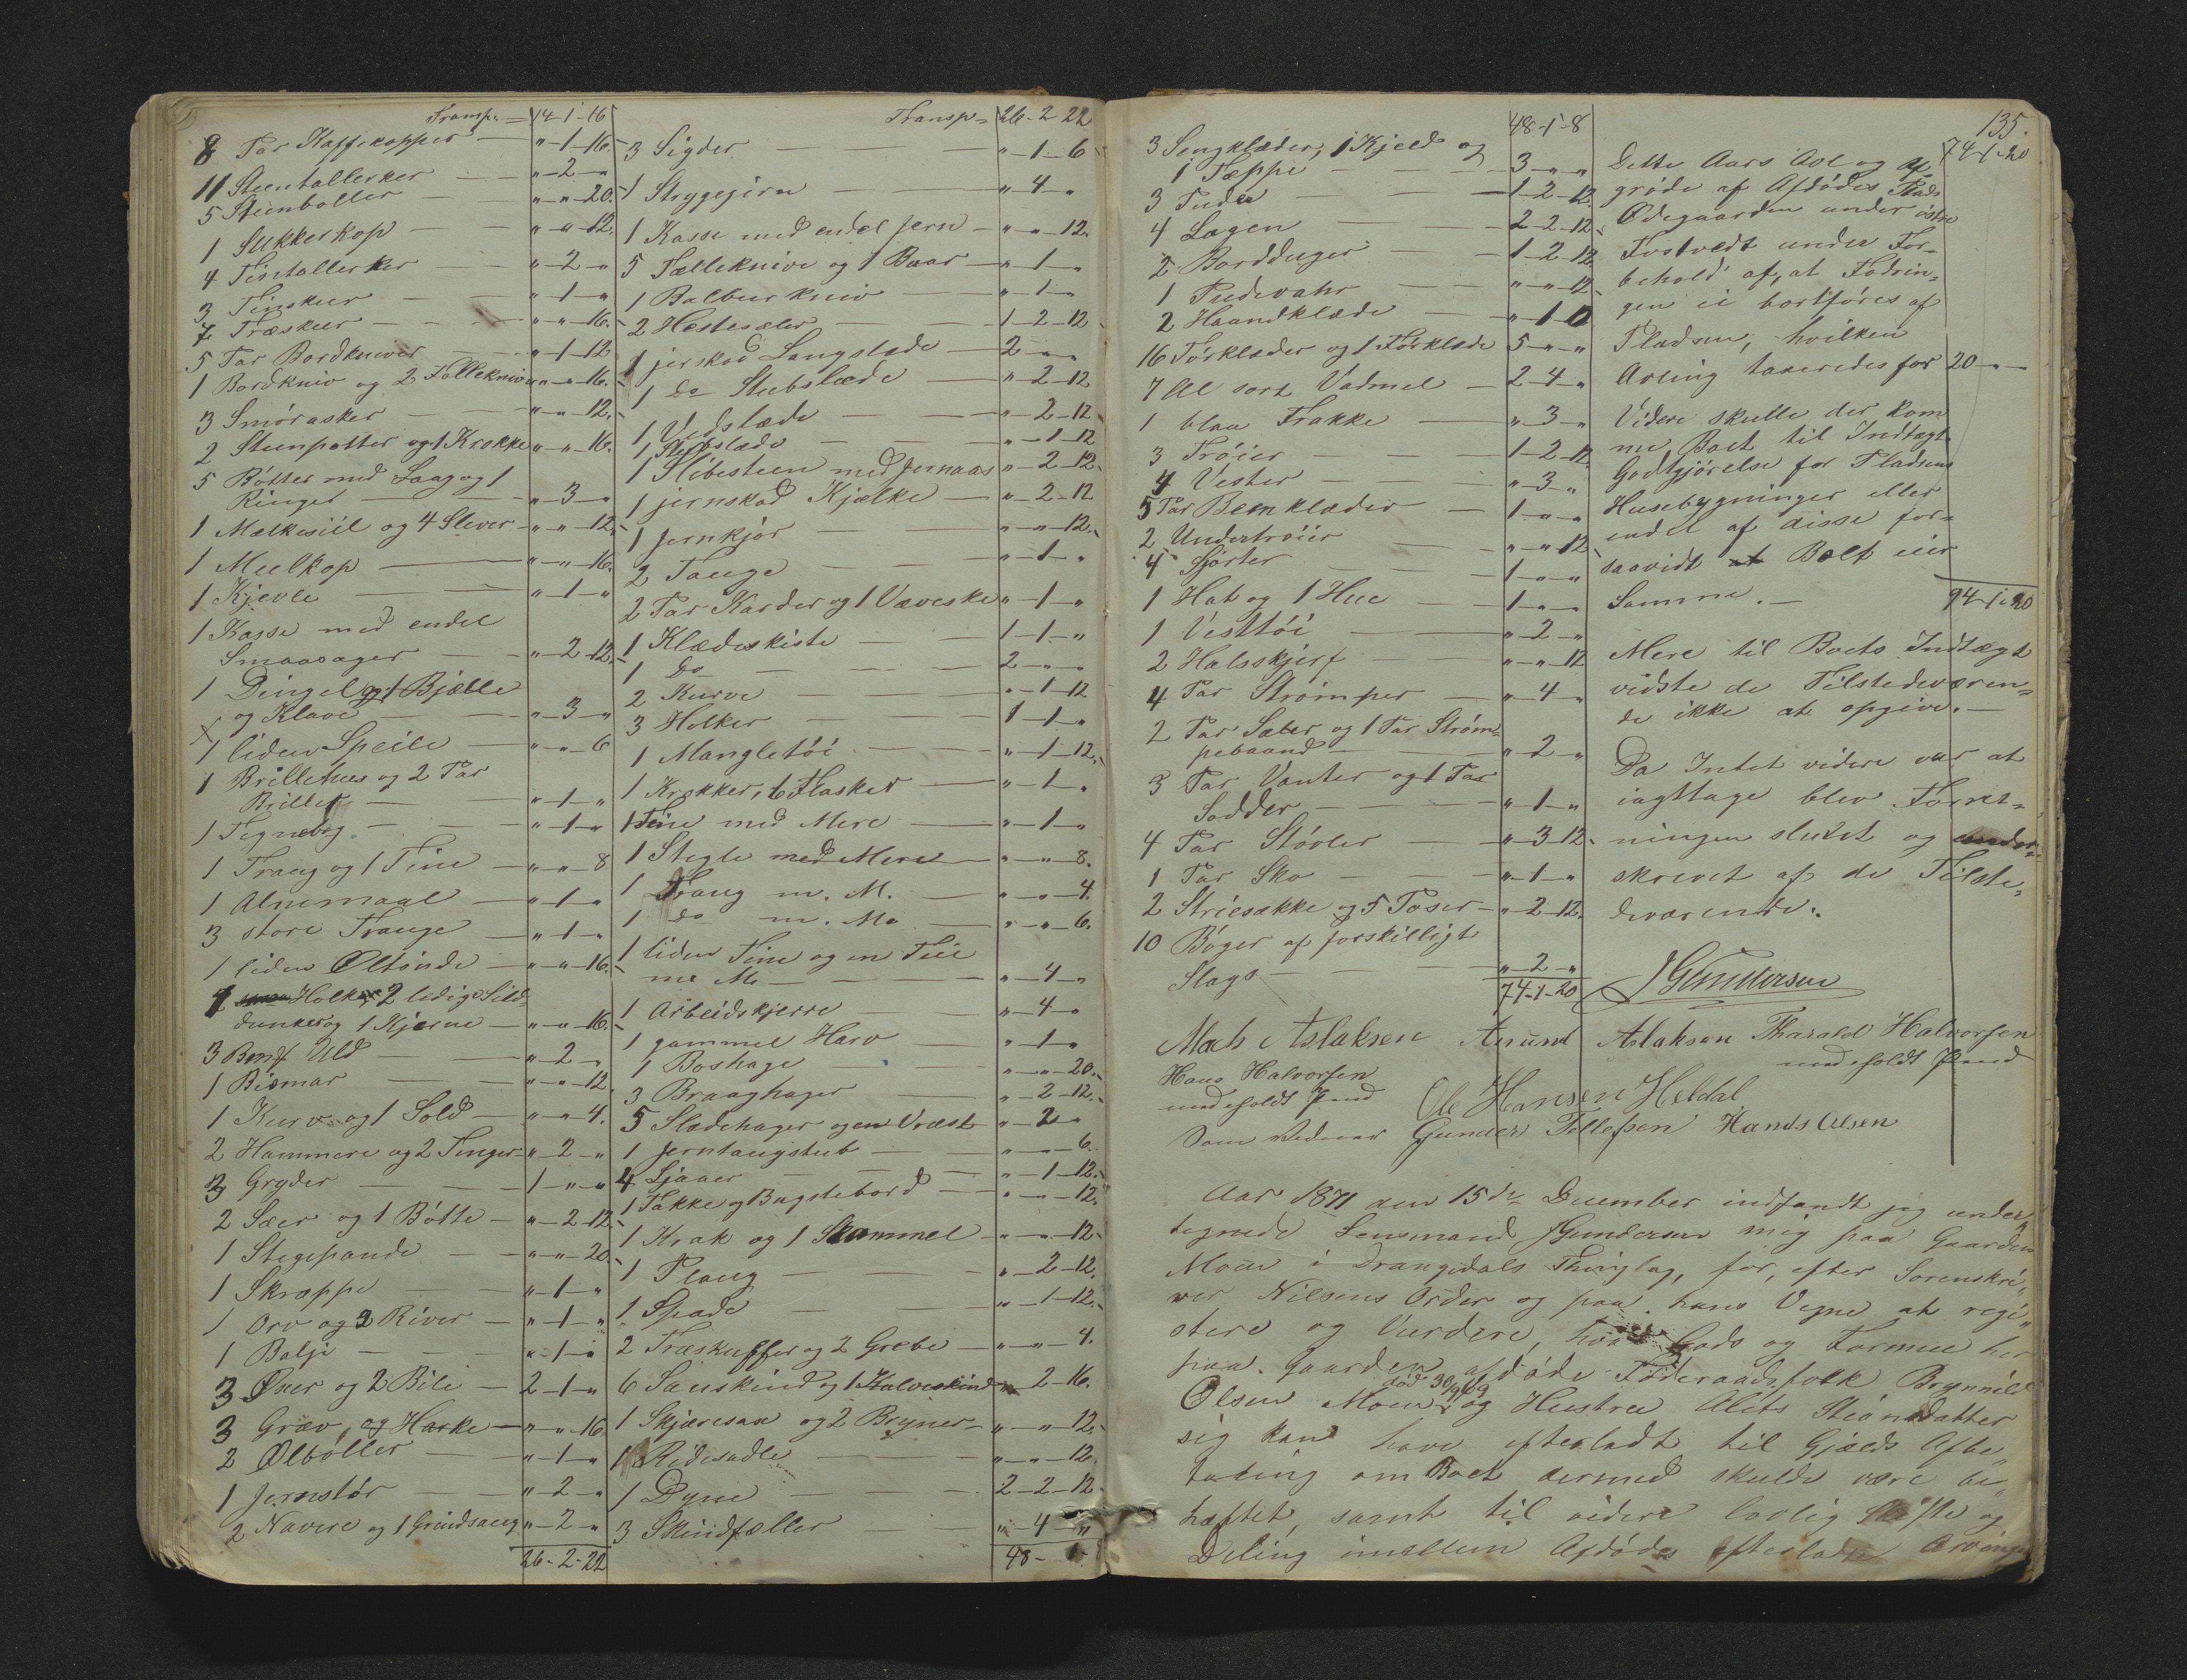 Transp. = 14-1-16
8 Par Kaffekopper — " - 1 - 16
11 Steentallerker — " - 2 - "
5 Steenboller — " - " - 20
1 Sukkerkop — " - " - 12
4 Tintallerker — " - 2 - "
3 Tinskeer — " - 1 - "
7 Træskeer — " - " - 16
5 Par Bordkniver — " - 1 - 12
1 Bordkniv og 2 Follekniv " - " - 16
3 Smørasker — " - " - 12
2 Steenpotter og 1 Krokke " - " - 16
5 Bøtter med Laag og 1
Ringet — " - 3 - "
1 Melkesiil og 4 Slever — " - " - 12
1 Meelkop — " - " - 16
1 Kjevle — " - 1 - "
1 Kasse med endel
Smaasager — " - 2 - 12
1 Dingel og 1 Bjælle
og Klave — " - 3 - "
1 liden Speile — " - " - 6
1 Brillehus og 2 Par
Briller — " - 1 - "
1 Tegnebog — " - 1 - "
1 Traug og 1 Tine — " - " - 8
1 Alnemaal — " - 1 - "
3 store Trauge — " - 1 - "
1 liden Øltønde — " - " - 16
1 Holk 2 ledige Sild
dunker og 1 Kjerne — " - " - 16
3 Uld — " - 2 - "
1 Bismar — " - " - 12
1 Kurv og 1 Sold — " - " - 4
2 Hammere og 2 Tinger " - 2 - "
3 Gryder — 1 - " - "
2 Sæer og 1 Bøtte — " - 2 - 12
1 Stegepande — " - " - 20
1 Skrappe — " - 1 - "
1 Orv og 2 River — " - 1 - "
1 Balje — " - 1 - "
3 Øxer og 2 Bile — 2 - 1 - "
3 Græv, og Harke — " - " - 16
2 Ølboller — " - 1 - "
1 Jernstør — " - 2 - "
2 Navere og 1 Grindsaug " - 2 - "
26-2-22
Transp = 26-2-22
3 Sigder — " - 1 - 6
1 Strygejern — " - 4 - "
1 Kasse med endel Jern — " - " - 12
5 Fælleknive og 1 Baar — " - 1 - "
1 Balbeerkniv — " - 1 - "
2 Hestesæler — 1 - 2 - 12
1 jerskod Langslæde — 2 - " - "
1 do Stubslæde — " - 2 - 12
1 Vedslæde — " - 2 - 12
1 Stubslæde — " - 1 - 12
1 Slibesteen med Jernaas " - 2 - 12
1 jernskod Kjælke — " - 2 - 12
1 Jernkjør — " - " - 12
2 Tauge — " - 1 - "
2 Par Karder og 1 Væveske " - 1 - "
1 Klædeskiste — 1 - 1 - "
1 do — 2 - " - "
2 Kurve — " - 1 - 12
3 Holker — 1 - 1 - "
1 Mangletøi — " - 1 - 12
1 Krokker, 6 Flasker — " - 1 - "
1 Tine med Mere — " - 1 - "
1 Stegle med Mere — " - " - 8
1 Traug m. M. — " - " - 4
1 do m. M — " - " - 6
1 liden Tine og en Tiie
me M — " - 4 - "
1 Arbeidskjerre — " - 4 - "
1 gammel Harv — " - 1 - "
1 Boshage — " - " - 20
3 Braaghager — " - 2 - 12
5 Sladehager og en Vræst " - 2 - "
1 Jerntaugstub — " - " - 6
4 Ljaaer — " - 1 - 12
1 Takke og Bagstebord — " - " - 12
1 Krak og 1 Skammel — " - " - 12
1 Plaug — " - 2 - 12
1 Spade — " - 1 - 12
2 Træskuffer og 2 Grebe — " - " - 4
6 Saueskind og 1 Kalveskind " 2 - 16
1 Skjæresax og 2 Bryner — " - " - 12
1 Ridesadle — " - " - 12
1 Dyne — 2 - 2 - 12
3 Skindfæller — " - 4 - "
48-1-
48-1-8
3 Sengklæder, 1 Kjeld og
1 Tæppe — 3 - " - "
3 Puder — 1 - 2 - 12
4 Lagen — 2 - 2 - 12
2 Bordduger — 1 - 2 - 12
1 Pudevahr — " - " - 12
2 Haandklæde — " - 1 - 12
16 Tørklæder og 1 Forklæde 5 - " - "
7 Al sort Vadmel — 2 - 4 - "
1 blaa Frakke — " - 3 - "
3 Trøier — 1 - 2 - 12
4 Vester — " - 3 - "
5 Par Benklæder — 1 - " - "
2 Undertrøier — " - " - 12
4 Skjorter — 1 - " - "
1 Hat og 1 Hue — 1 - " - "
1 Vesttøi — " - 2 - "
2 Halsskjerf — " - " - 12
4 Par Strømper — " - 4 - "
2 Par Sæler og 1 Par Strøm=
pebaand — " - 2 - "
3 Par Vanter og 1 Par
Sodder — " - 1 - "
4 Par Støvler — " - 3 - 12
1 Par Sko — " - 1 - "
2 Striesække og 5 Poser — " - 2 - 12
10 Bøger af forskilligt
Slags — " - 2 - "
74-1-20
135.
74-1-20
Dette Aars Avl og af
grøde af Afdødes Plads
Ødegaarden under østre
Tostvedt under For-
behold af, at Fodrin=
gen ei bortføres af
Pladsen, hvilken
Avling taxeredes for 20 - " - "
Videre skulle der kom
me Boet til Indtægt
Godtgjørelse for Pladsens
Husebygninger eller
endel af disse for=
saavidt Boet eier
Samme. — 94-1-20
Mere til Boets Indtægt
vidste de Tilstedeværen=
de ikke at opgive. —
Da Intet videre var at
iagttage blev Forret=
ningen sluttet og under=
skrevet af de Tilste=
deværende.
JGundersen
Mads Aslaksen Anund Aslaksen Tharald Halvorsen
med holdt Pend
Hans Halvorsen
med holdt Pend
Ole Hansen Heldal
Som Vidner Gunder Tellefsen Hands Olsen
Aar 1871 den 15de December indfandt jeg under=
tegnede Lensmand JGundersen mig paa Gaarden
Moen i Drangedals Thinglag, for, efter Sorenskri=
ver Nilsens Order og paa hans Vegne at regi=
stere og Vurdere, hvad Gods og Formue her
paa Gaarden afdøde Føderaadsfolk Brynnild
død 30/9 69
Olsen Moen og Hustru Alets Steansdatter
sig kan have efterladt til Gjælds Afbe=
taling om Boet dermed skulde være be=
hæftet, samt til videre lovlig Skifte og
Deling imellem Afdødes efterladte Arvinger